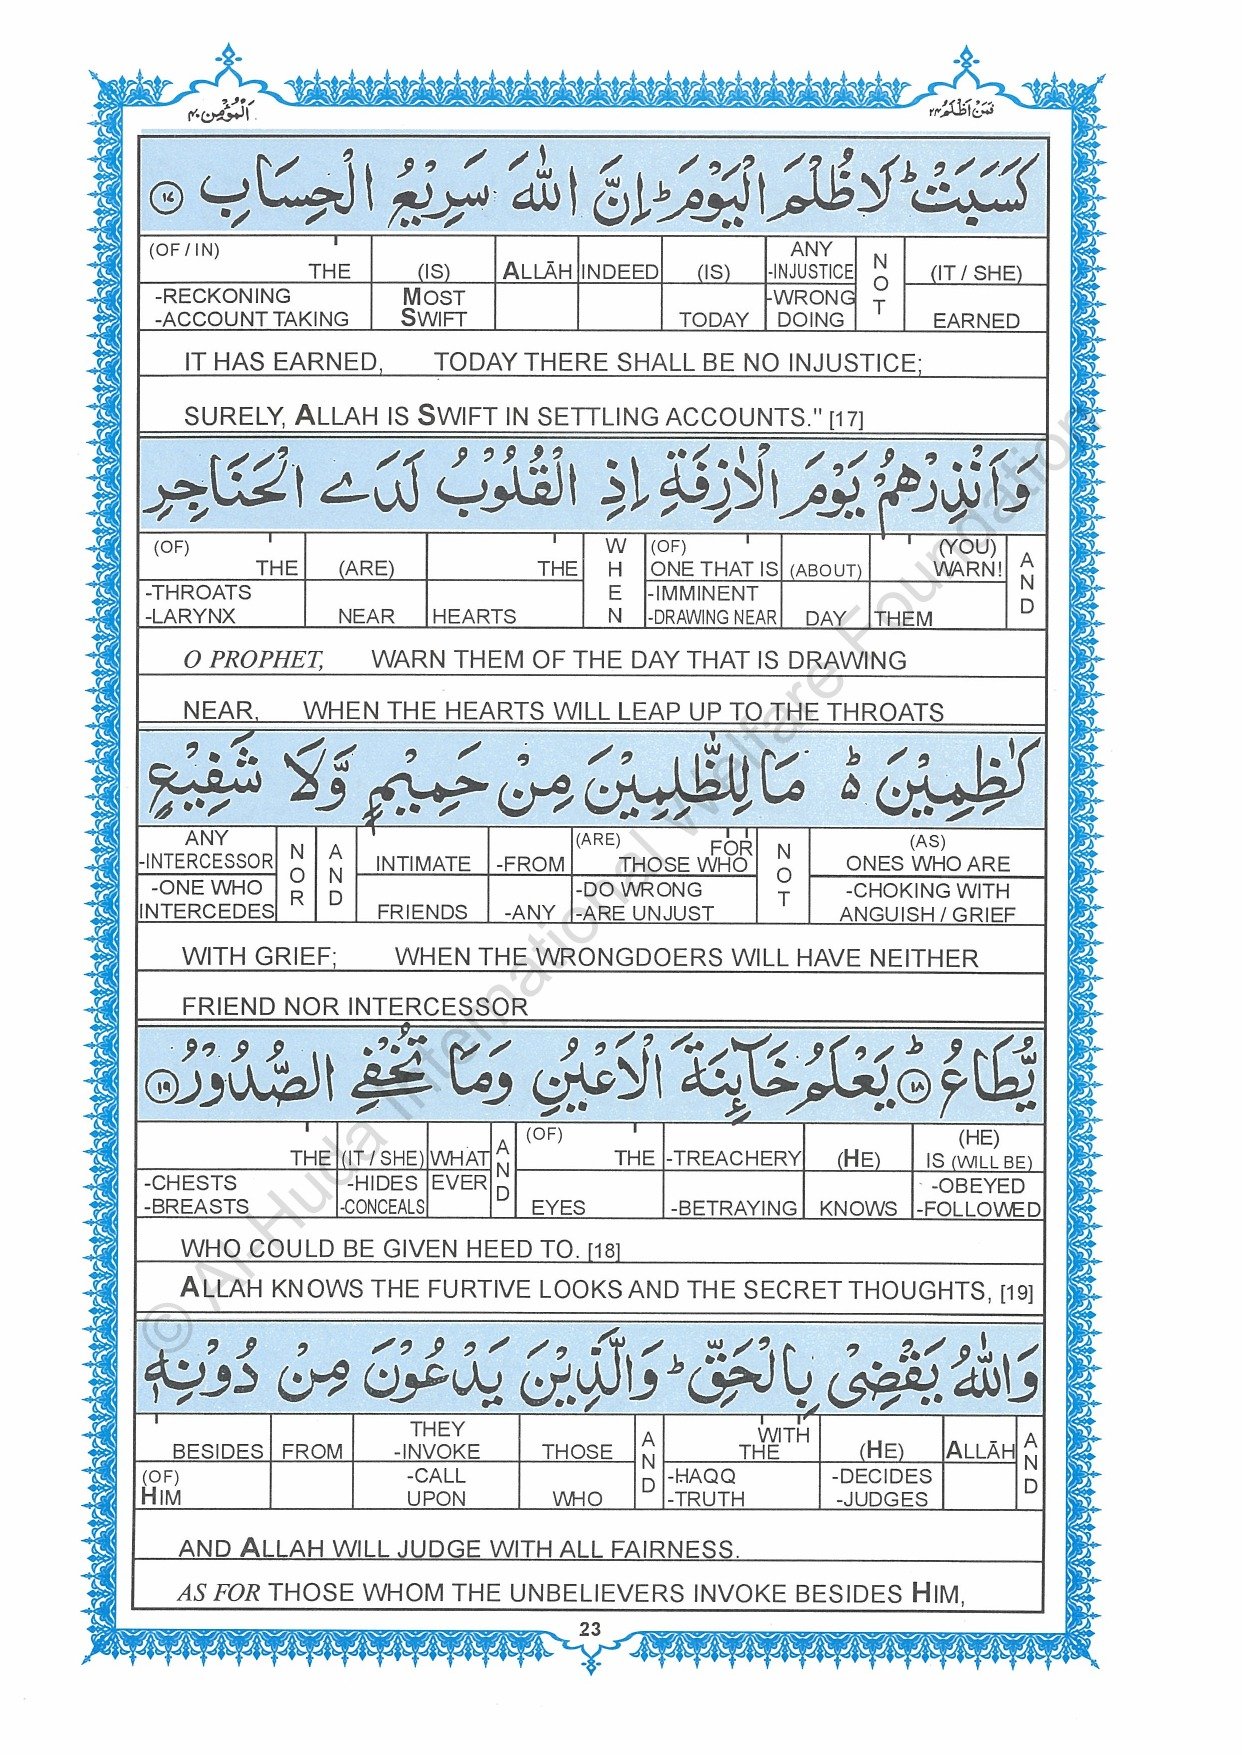 اَلْمُؤْمِن ۴۰
فَمَنْ اَظْلَمُ ۲۴
كَسَبَتْ ؕ لَا ظُلْمَ الْيَوْمَ ؕ اِنَّ اللّٰهَ سَرِيْعُ الْحِسَابِ ۱۷
(OF / IN) THE (IS) ALLĀH INDEED (IS) ANY -INJUSTICE NOT (IT / SHE)
-RECKONING -ACCOUNT TAKING MOST SWIFT TODAY -WRONG DOING EARNED
IT HAS EARNED, TODAY THERE SHALL BE NO INJUSTICE;
SURELY, ALLAH IS SWIFT IN SETTLING ACCOUNTS." [17]
وَاَنْذِرْهُمْ يَوْمَ الْاٰزِفَةِ اِذِ الْقُلُوْبُ لَدَى الْحَنَاجِرِ
(OF) THE (ARE) THE WHEN (OF) ONE THAT IS (ABOUT) (YOU) WARN! AND
-THROATS -LARYNX NEAR HEARTS -IMMINENT -DRAWING NEAR DAY THEM
O PROPHET, WARN THEM OF THE DAY THAT IS DRAWING
NEAR, WHEN THE HEARTS WILL LEAP UP TO THE THROATS
كٰظِمِيْنَ ؕ مَا لِلظّٰلِمِيْنَ مِنْ حَمِيْمٍ وَّلَا شَفِيْعٍ
ANY -INTERCESSOR NOR AND INTIMATE -FROM (ARE) FOR THOSE WHO NOT (AS) ONES WHO ARE
-ONE WHO INTERCEDES FRIENDS -ANY -DO WRONG -ARE UNJUST -CHOKING WITH ANGUISH / GRIEF
WITH GRIEF; WHEN THE WRONGDOERS WILL HAVE NEITHER
FRIEND NOR INTERCESSOR
يُّطَاعُ ؕ ۱۸ يَعْلَمُ خَآئِنَةَ الْاَعْيُنِ وَمَا تُخْفِي الصُّدُوْرُ ۱۹
THE (IT / SHE) WHAT AND (OF) THE -TREACHERY (HE) (HE) IS (WILL BE)
-CHESTS -BREASTS -HIDES -CONCEALS EVER EYES -BETRAYING KNOWS -OBEYED -FOLLOWED
WHO COULD BE GIVEN HEED TO. [18]
ALLAH KNOWS THE FURTIVE LOOKS AND THE SECRET THOUGHTS, [19]
وَاللّٰهُ يَقْضِيْ بِالْحَقِّ ؕ وَالَّذِيْنَ يَدْعُوْنَ مِنْ دُوْنِهٖ
BESIDES FROM THEY -INVOKE THOSE AND WITH THE (HE) ALLĀH AND
(OF) HIM -CALL UPON WHO -HAQQ -TRUTH -DECIDES -JUDGES
AND ALLAH WILL JUDGE WITH ALL FAIRNESS.
AS FOR THOSE WHOM THE UNBELIEVERS INVOKE BESIDES HIM,
23
© Al-Huda International Welfare Foundation